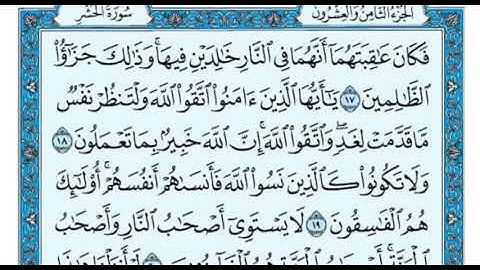 الجزء الثامن والعشرون
سورة الحشر
فَكَانَ عَٰقِبَتَهُمَآ أَنَّهُمَا فِى ٱلنَّارِ خَٰلِدَيْنِ فِيهَا ۚ وَذَٰلِكَ جَزَٰٓؤُا۟
ٱلظَّٰلِمِينَ ١٧ يَٰٓأَيُّهَا ٱلَّذِينَ ءَامَنُوا۟ ٱتَّقُوا۟ ٱللَّهَ وَلْتَنظُرْ نَفْسٌ
مَّا قَدَّمَتْ لِغَدٍ ۖ وَٱتَّقُوا۟ ٱللَّهَ ۚ إِنَّ ٱللَّهَ خَبِيرٌۢ بِمَا تَعْمَلُونَ ١٨
وَلَا تَكُونُوا۟ كَٱلَّذِينَ نَسُوا۟ ٱللَّهَ فَأَنسَىٰهُمْ أَنفُسَهُمْ ۚ أُو۟لَٰٓئِكَ
هُمُ ٱلْفَٰسِقُونَ ١٩ لَا يَسْتَوِىٓ أَصْحَٰبُ ٱلنَّارِ وَأَصْحَٰبُ